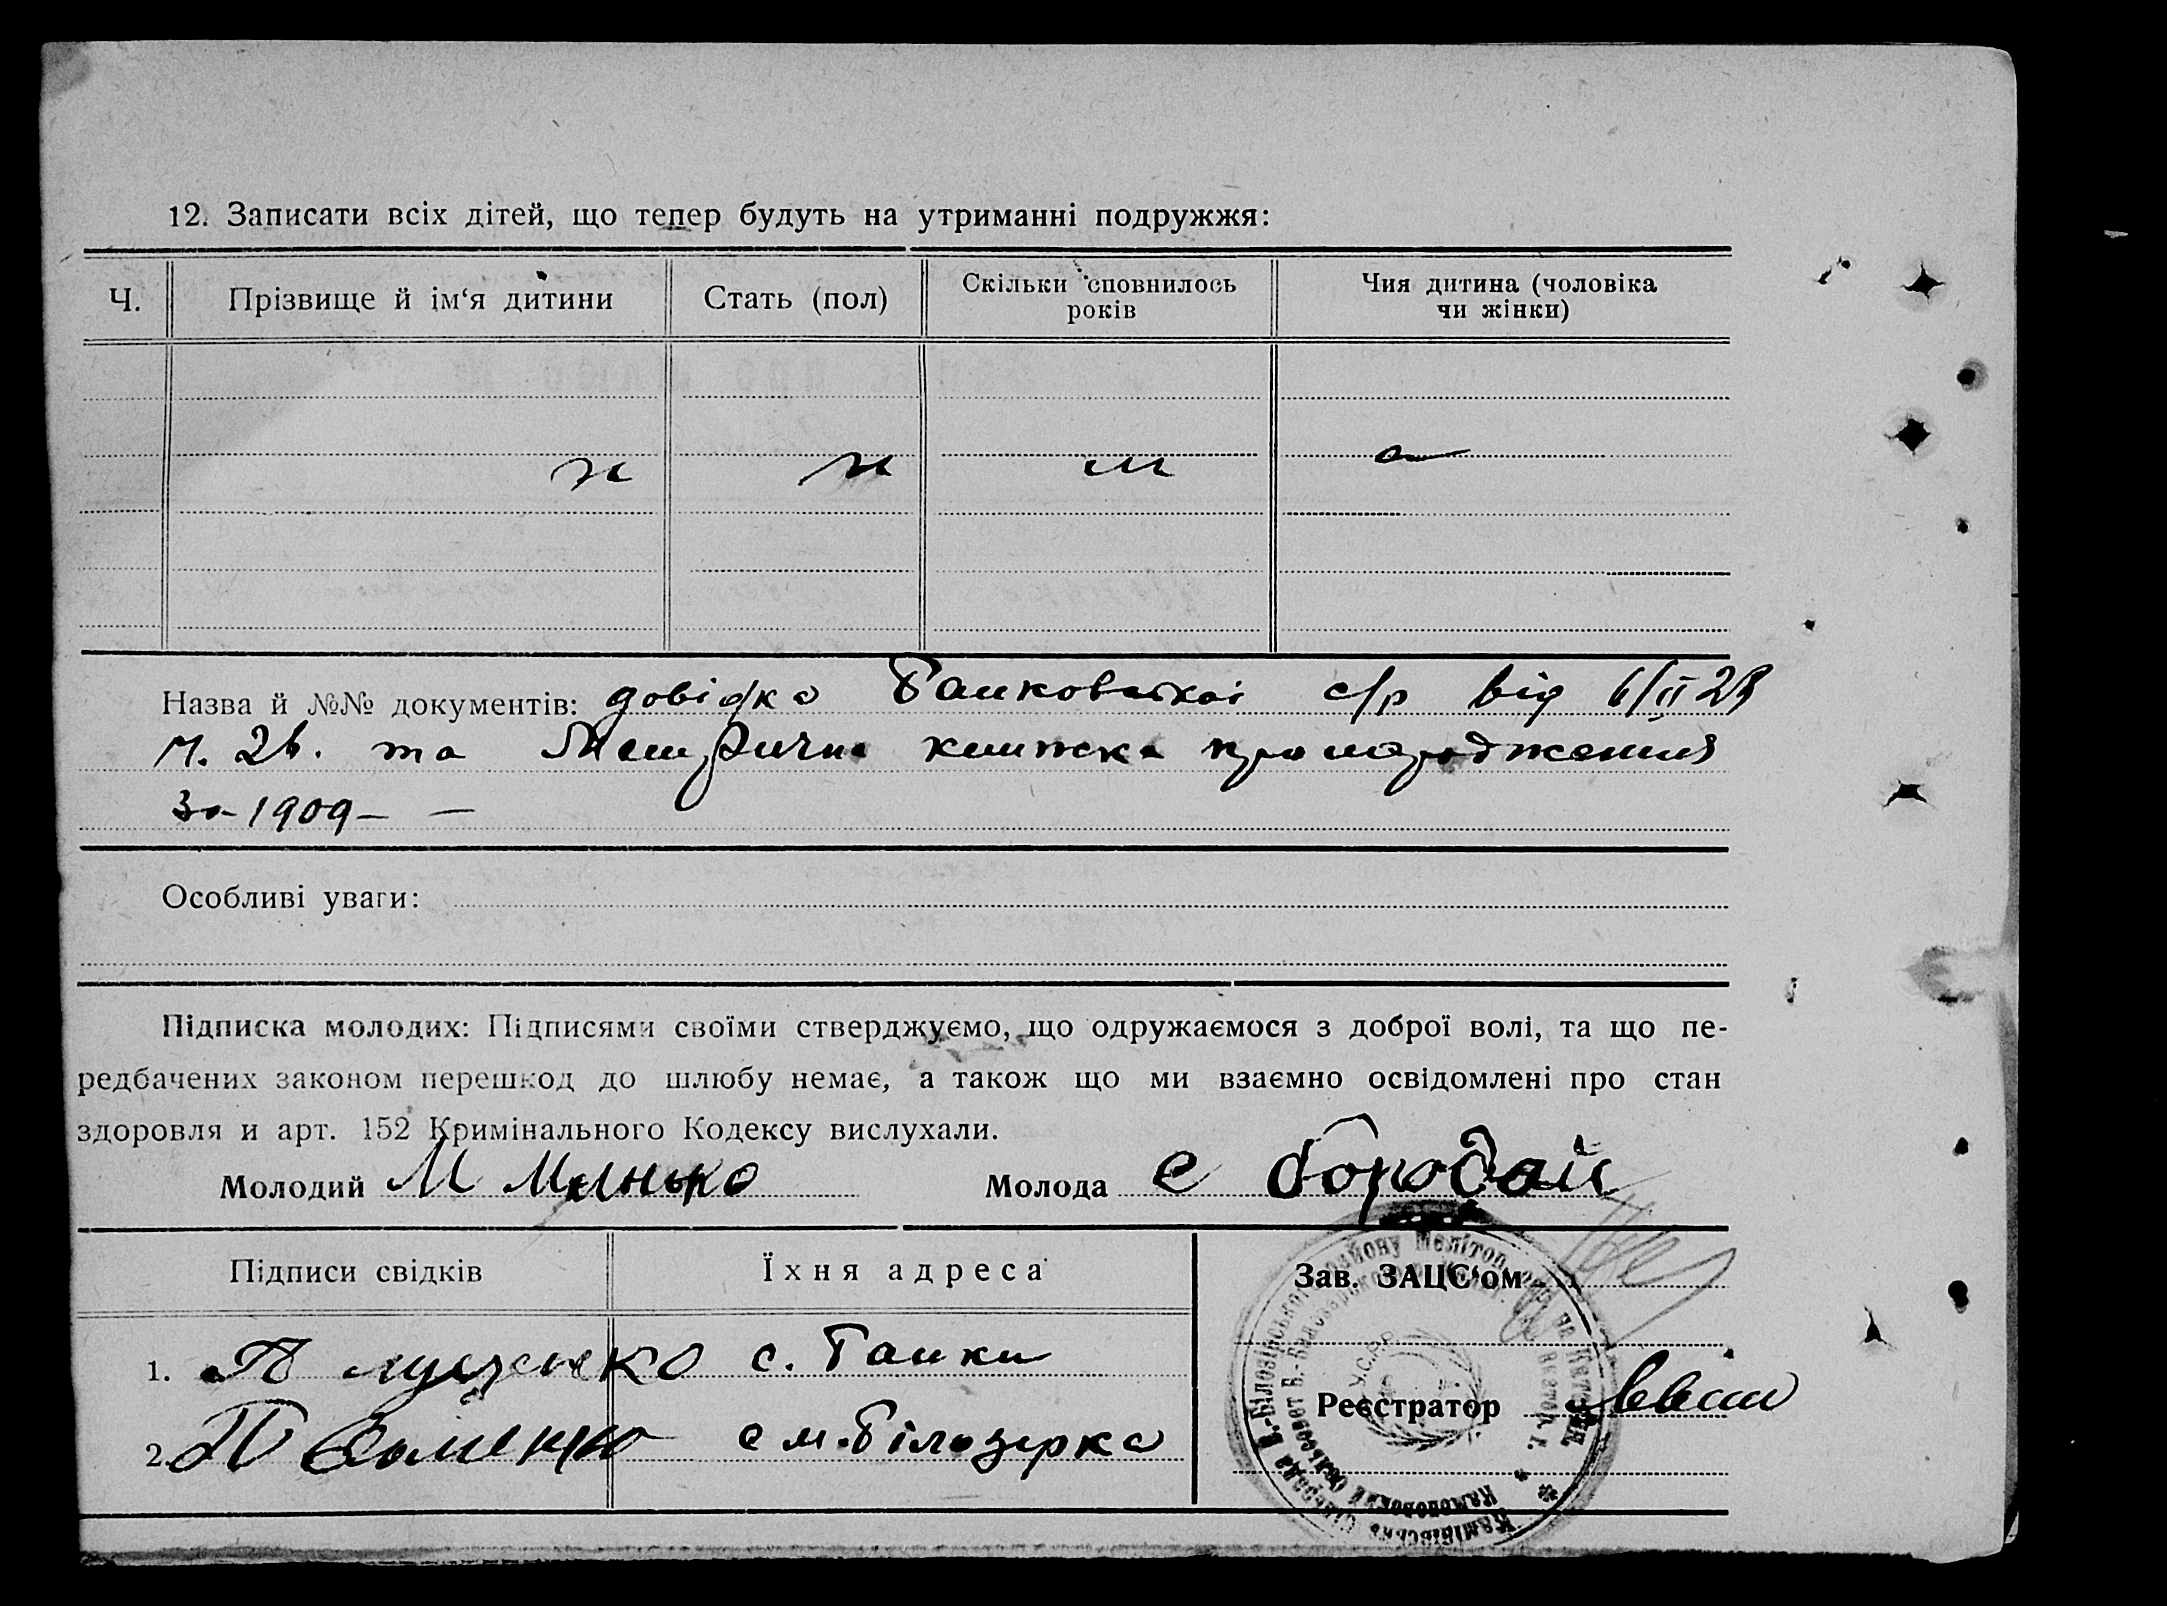 12. Записати всіх дітей, що тепер будуть на утриманні подружжя:
Ч. Прізвище й ім‘я дитини Стать (пол) Скільки сповнилось років Чия дитина (чоловіка чи жінки)
Назва й №№ документів: довідка с/р від 6/II 28
та Метрична книжка про народження
За 1909 –
Особливі уваги:
Підписка молодих: Підписями своїми стверджуємо, що одружаємося з доброї волі, та що пе-
редбачених законом перешкод до шлюбу немає, а також що ми взаємно освідомлені про стан
здоровля и арт. 152 Кримінального Кодексу вислухали.
Молодий М Минько Молода Є бородай
Підписи свідків Їхня адреса Зав. ЗАЦС‘ом
1. с. Балки
Реєстратор
2. П с м. Білозірка
У.С.Р.Р.